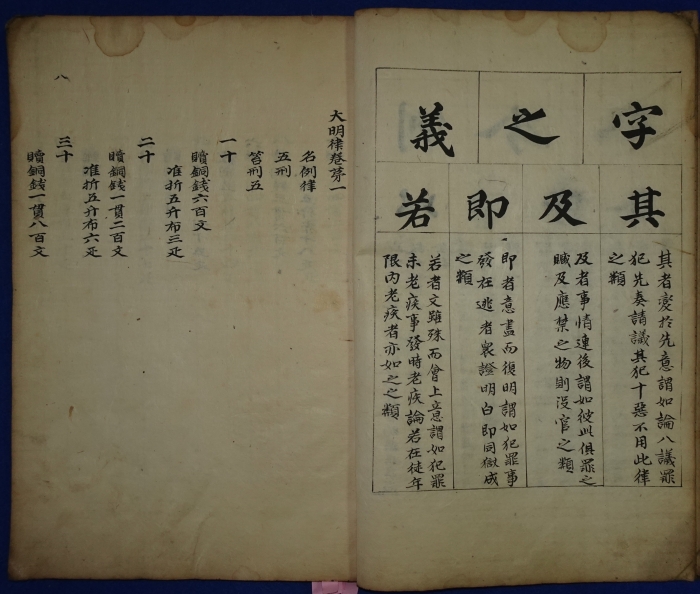 字之義
其及即若
其者変於先意謂如論八議罪
犯先奏請議其犯十惡不用此律
之類
及者事情連後謂如彼此俱罪之
贓及應禁之物則沒官之類
即者意盡而復明謂如犯罪事
發在逃者衆證明白即同獄成
之類
若者文雖殊而會上意謂如犯罪
未老疾事發時老疾論若在徒年
限內老疾者亦如之之類
大明律卷苐一
名例律
五刑
笞刑五
一十
贖銅錢六百文
准折五升布三疋
二十
贖銅錢一貫二百文
准折五升布六疋
三十
贖銅錢一貫八百文
八